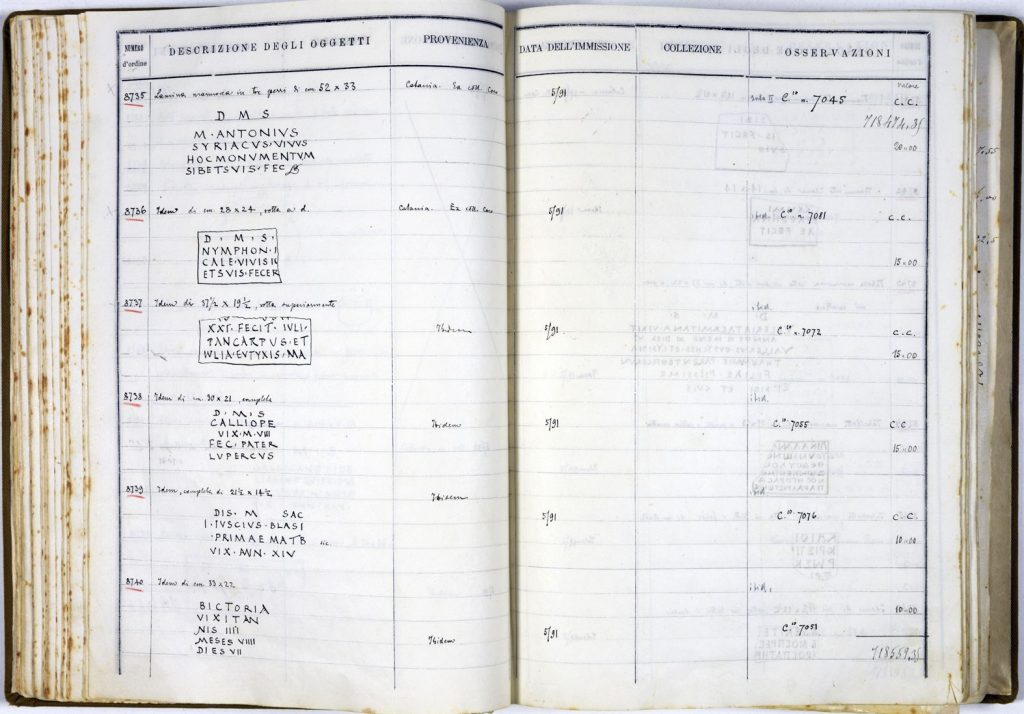 NUMERO d'ordine DESCRIZIONE DEGLI OGGETTI PROVENIENZA DATA DELL'IMMISSIONE COLLEZIONE OSSERVAZIONI
Valore
8735 Lamina marmorea in tre pezzi di cm 52 x 33 Catania. Ex coll. 5/91 C.10 n. 7045 C.C.
718474.35
D M S
M · ANTONIVS
SYRIACVS · VIVVS 20.00
HOC MONVMENTVM
SIBETSVIS · FEC
8736 Idem di cm. 28 x 24, rotta a d. Catania. Ex coll. 5/91 ibid. C.10 n. 7081 C.C.
D · M · S ·
NYMPHON · I
CALE · VIVIS II 15.00
ETSVIS · FECER
8737 Idem di 37½ x 19½, rotta superiormente ibid.
XXT · FECIT · IVLI · Ibidem 5/91 C.10 n. 7072 C.C.
TANCARPUS · ET
WLIA · EVTYXIS · MA 15.00
8738 Idem di cm. 30 x 21, completa ibid.
D · M · S
CALLIOPE Ibidem 5/91 C.10 7055 C.C.
VIX · M · VIII
FEC · PATER 15.00
LVPERCVS
8739 Idem, completa di 21½ x 14½ Ibidem ibid.
DIS · M SAC 5/91 C.10 7076 C.C.
I · IVSCIUS · BLASI
· PRIMAE MATB sic. 10.00
VIX · ANN · XIV
8740 Idem di cm 33 x 22 ibid.
BICTORIA 10.00
VIXIT AN
NIS IIII Ibidem 5/91 C.10 7051
MESES VIIII
DIES VII 718559.35